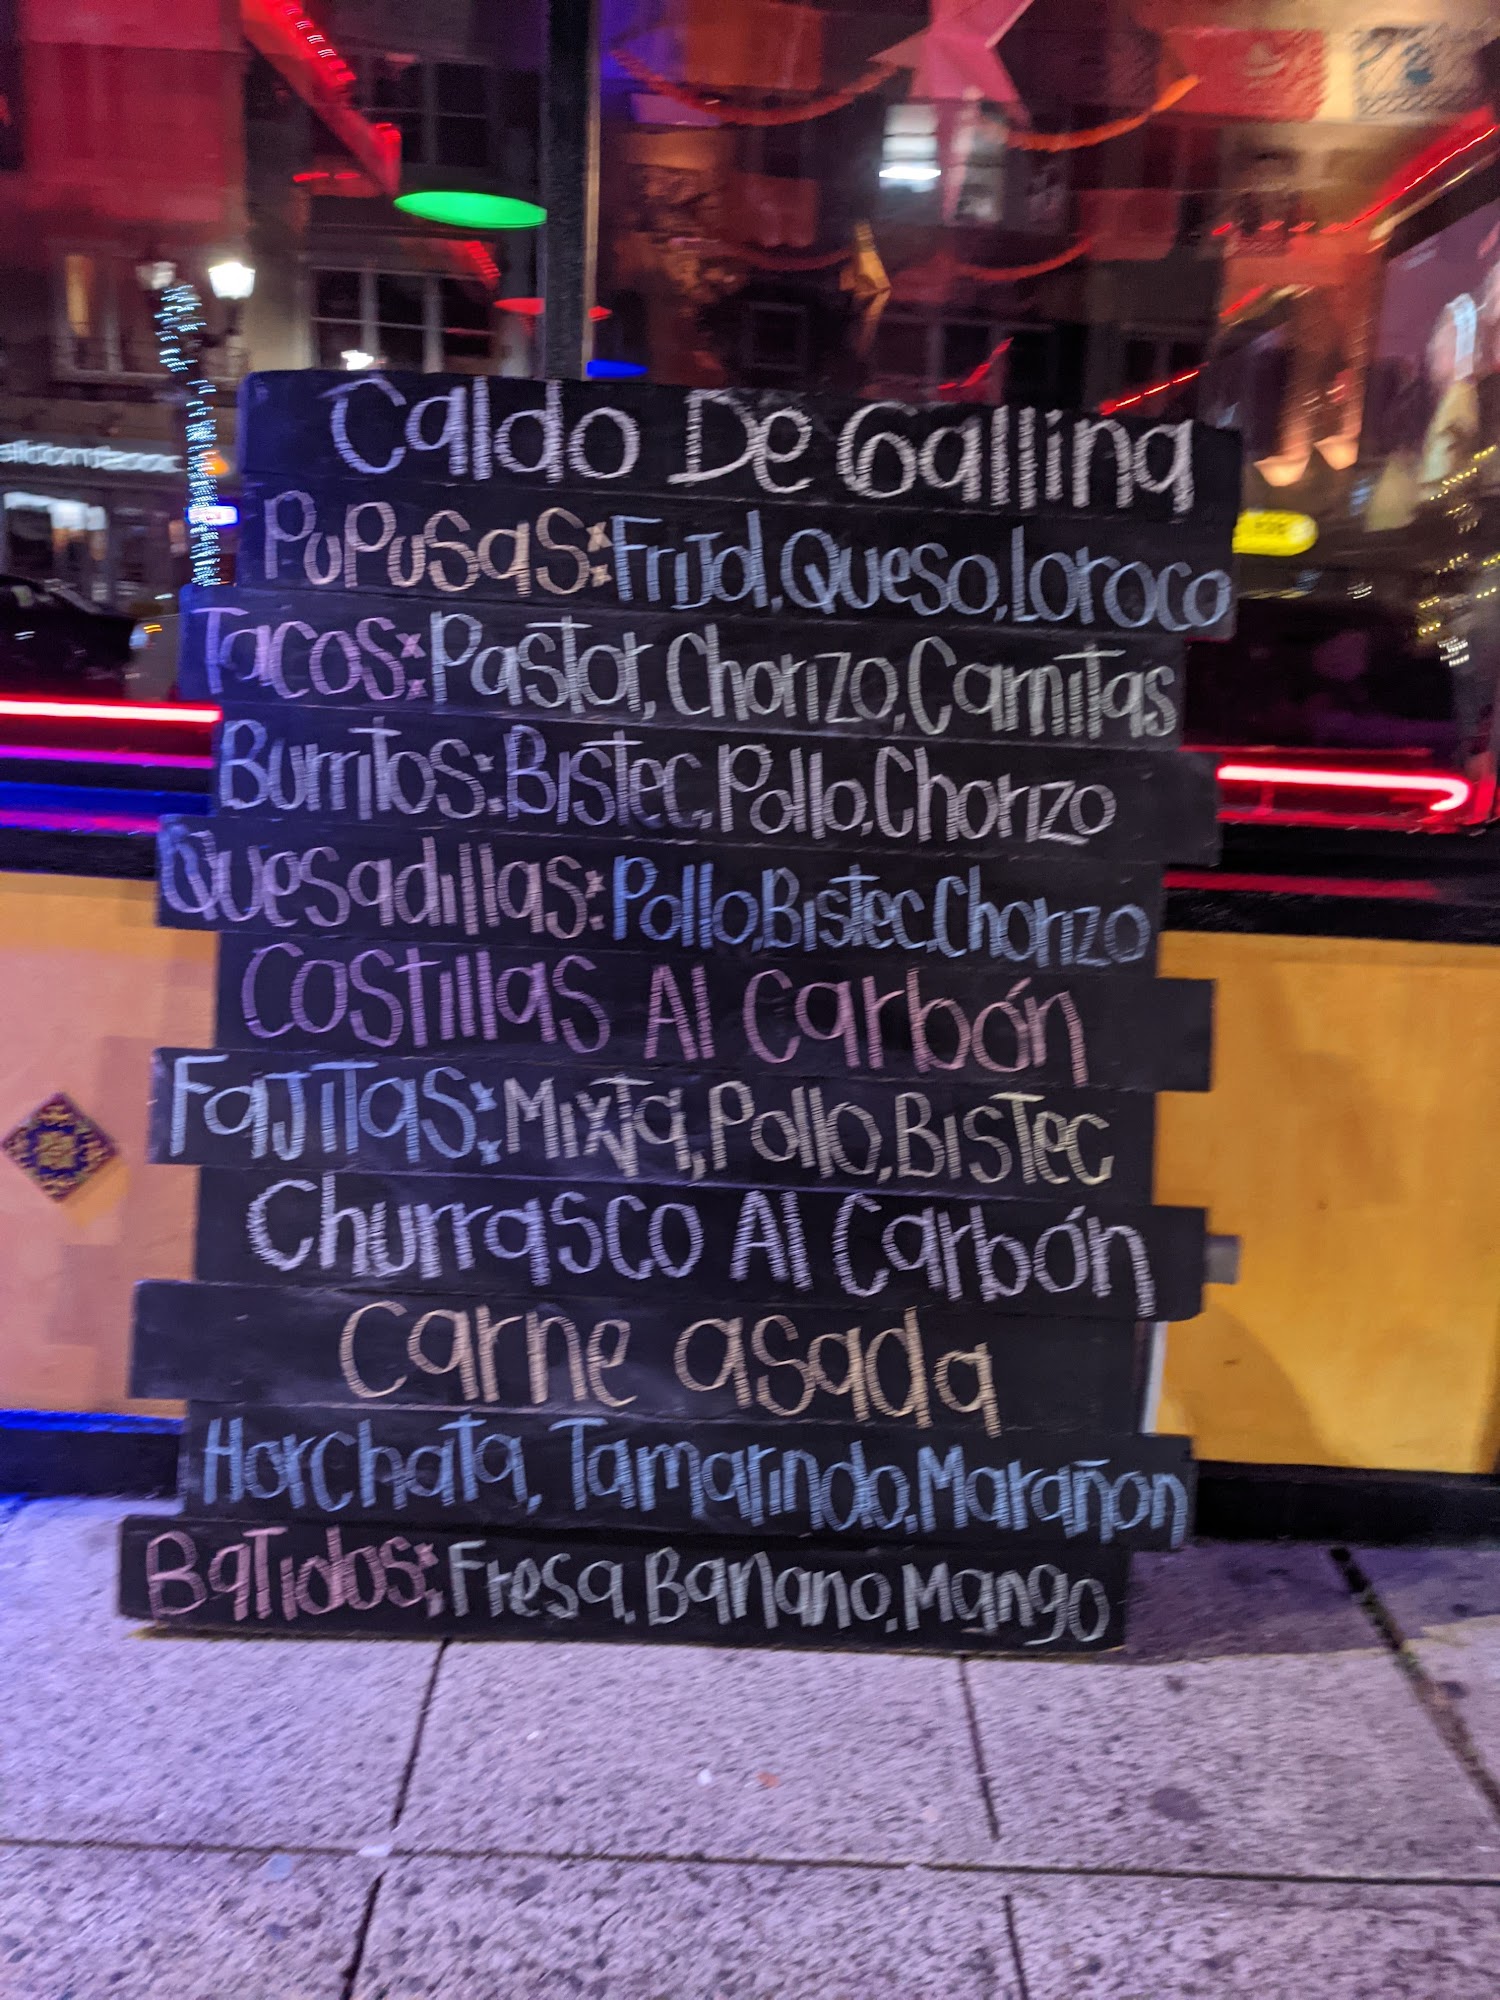 Caldo De Gallina
Pupusas: Frijol, Queso, Loroco
Tacos: Pastor, Chorizo, Carnitas
Burritos: Bistec, Pollo, Chorizo
Quesadillas: Pollo, Bistec, Chorizo
Costillas Al Carbón
Fajitas: Mixta, Pollo, Bistec
Churrasco Al Carbón
Carne asada
Horchata, Tamarindo, Marañon
Batidos: Fresa, Banano, Mango